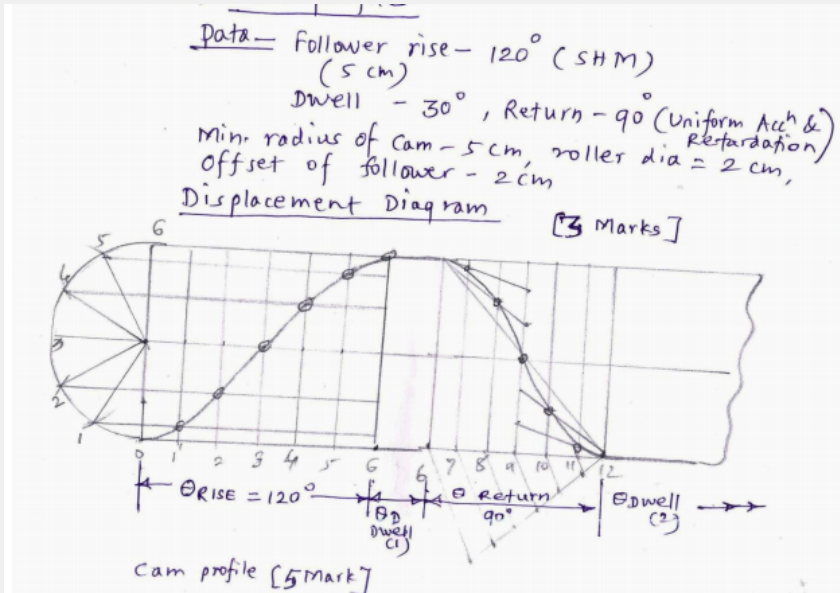 Data - Follower rise - 120° (SHM)
(5 cm)
Dwell - 30°, Return - 90° (Uniform Accⁿ &
Retardation)
Min. radius of Cam - 5 cm, roller dia = 2 cm,
Offset of follower - 2 cm
Displacement Diagram [3 Marks]
6
5
4
3
2
1
0 1 2 3 4 5 6 6 7 8 9 10 11 12
θRISE = 120° θD Dwell (1) θ Return 90° θDwell (2)
Cam profile [5 Mark]